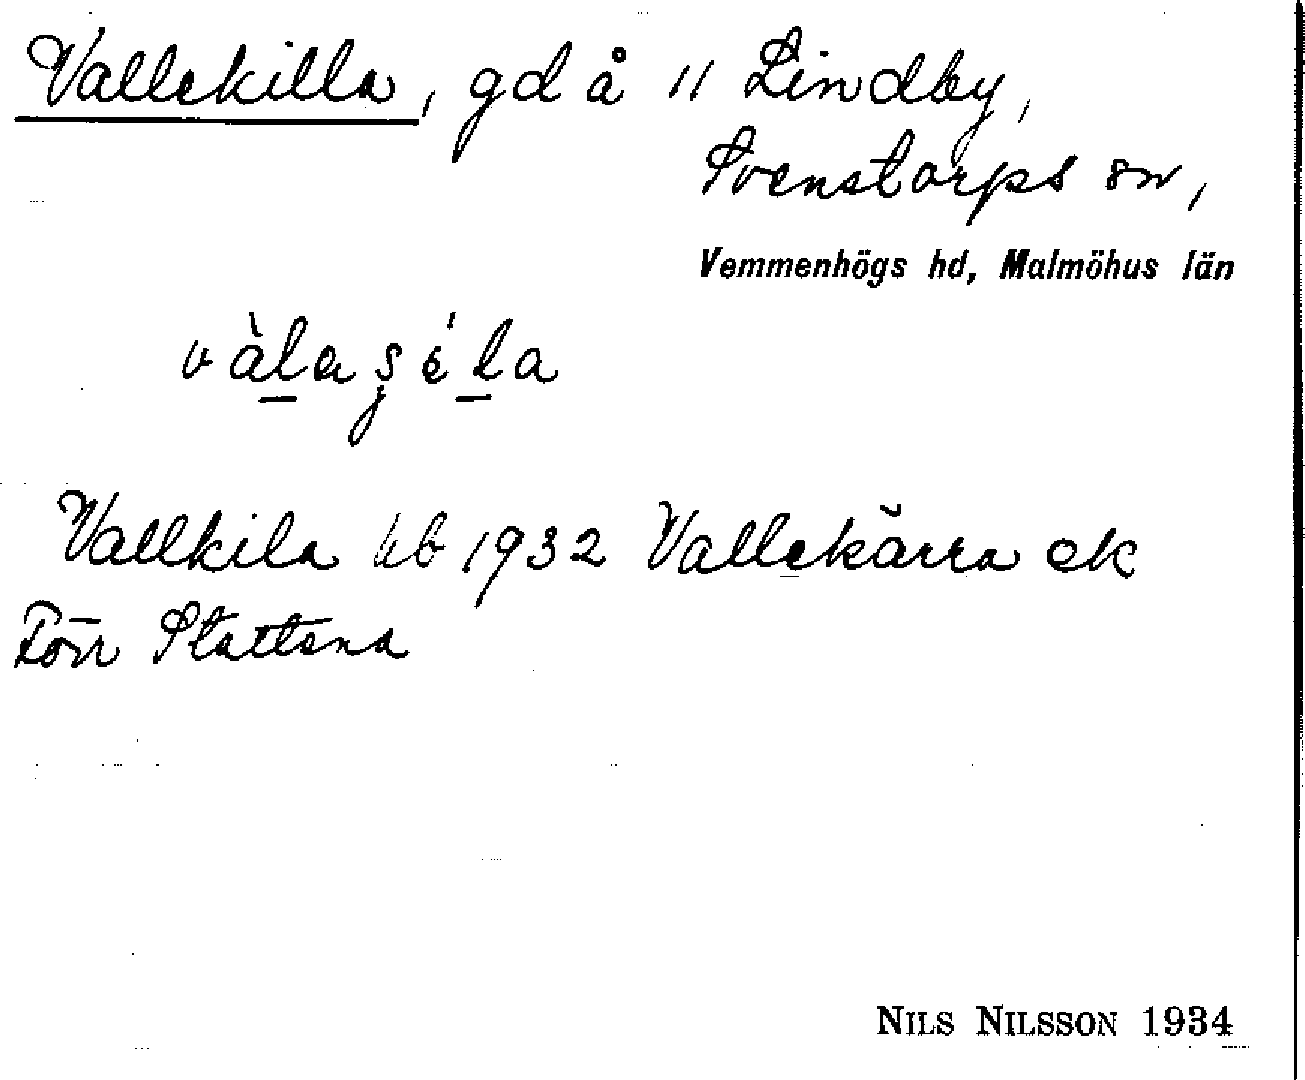 Vallekilla, gd å 11 Lindby,
Svenstorps sn,
Vemmenhögs hd, Malmöhus län
Vallkila hb 1932 Vallekärra ek
Förr Stattena
NILS NILSSON 1934